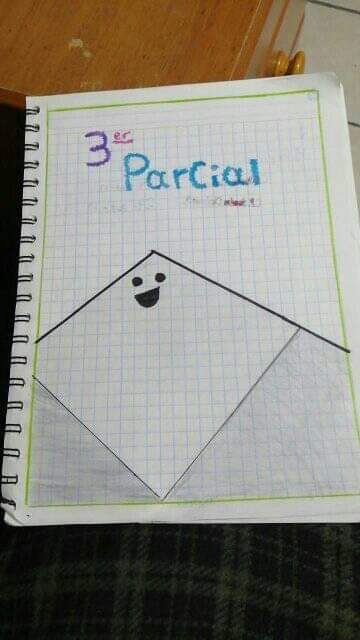 3er
Parcial